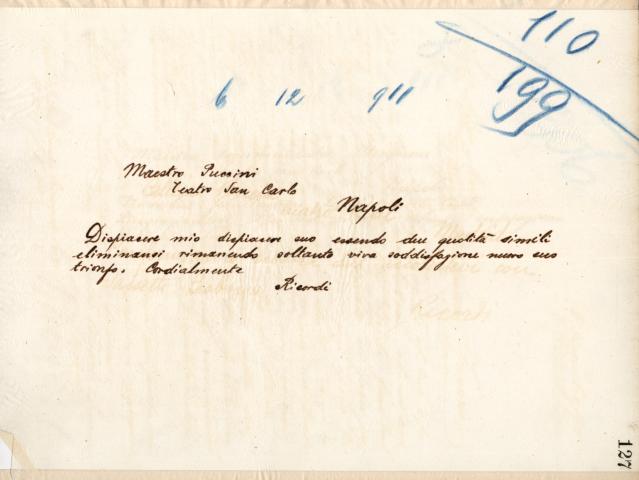 110
199
6 12 911
Maestro Puccini
Teatro San Carlo
Napoli
Dispiacere mio dispiacere suo essendo due quotità simili
eliminansi rimanendo soltanto viva soddisfazione nuovo suo
trionfo. Cordialmente
Ricordi
127